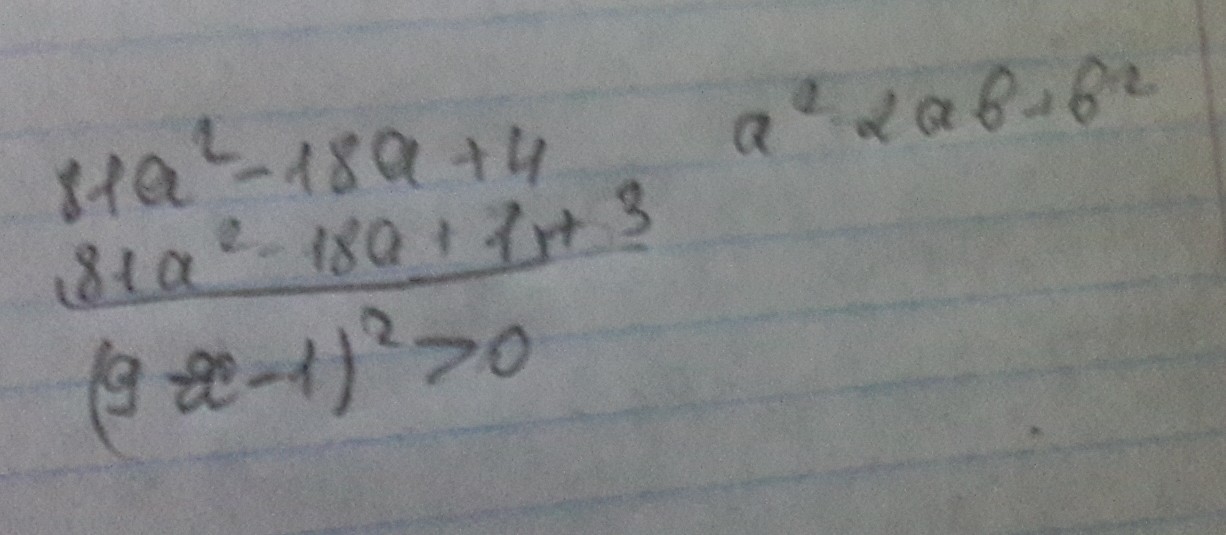 81a² - 18a + 4
a² - 2ab + b²
81a² - 18a + 1 + 3
(9 - 1)² > 0